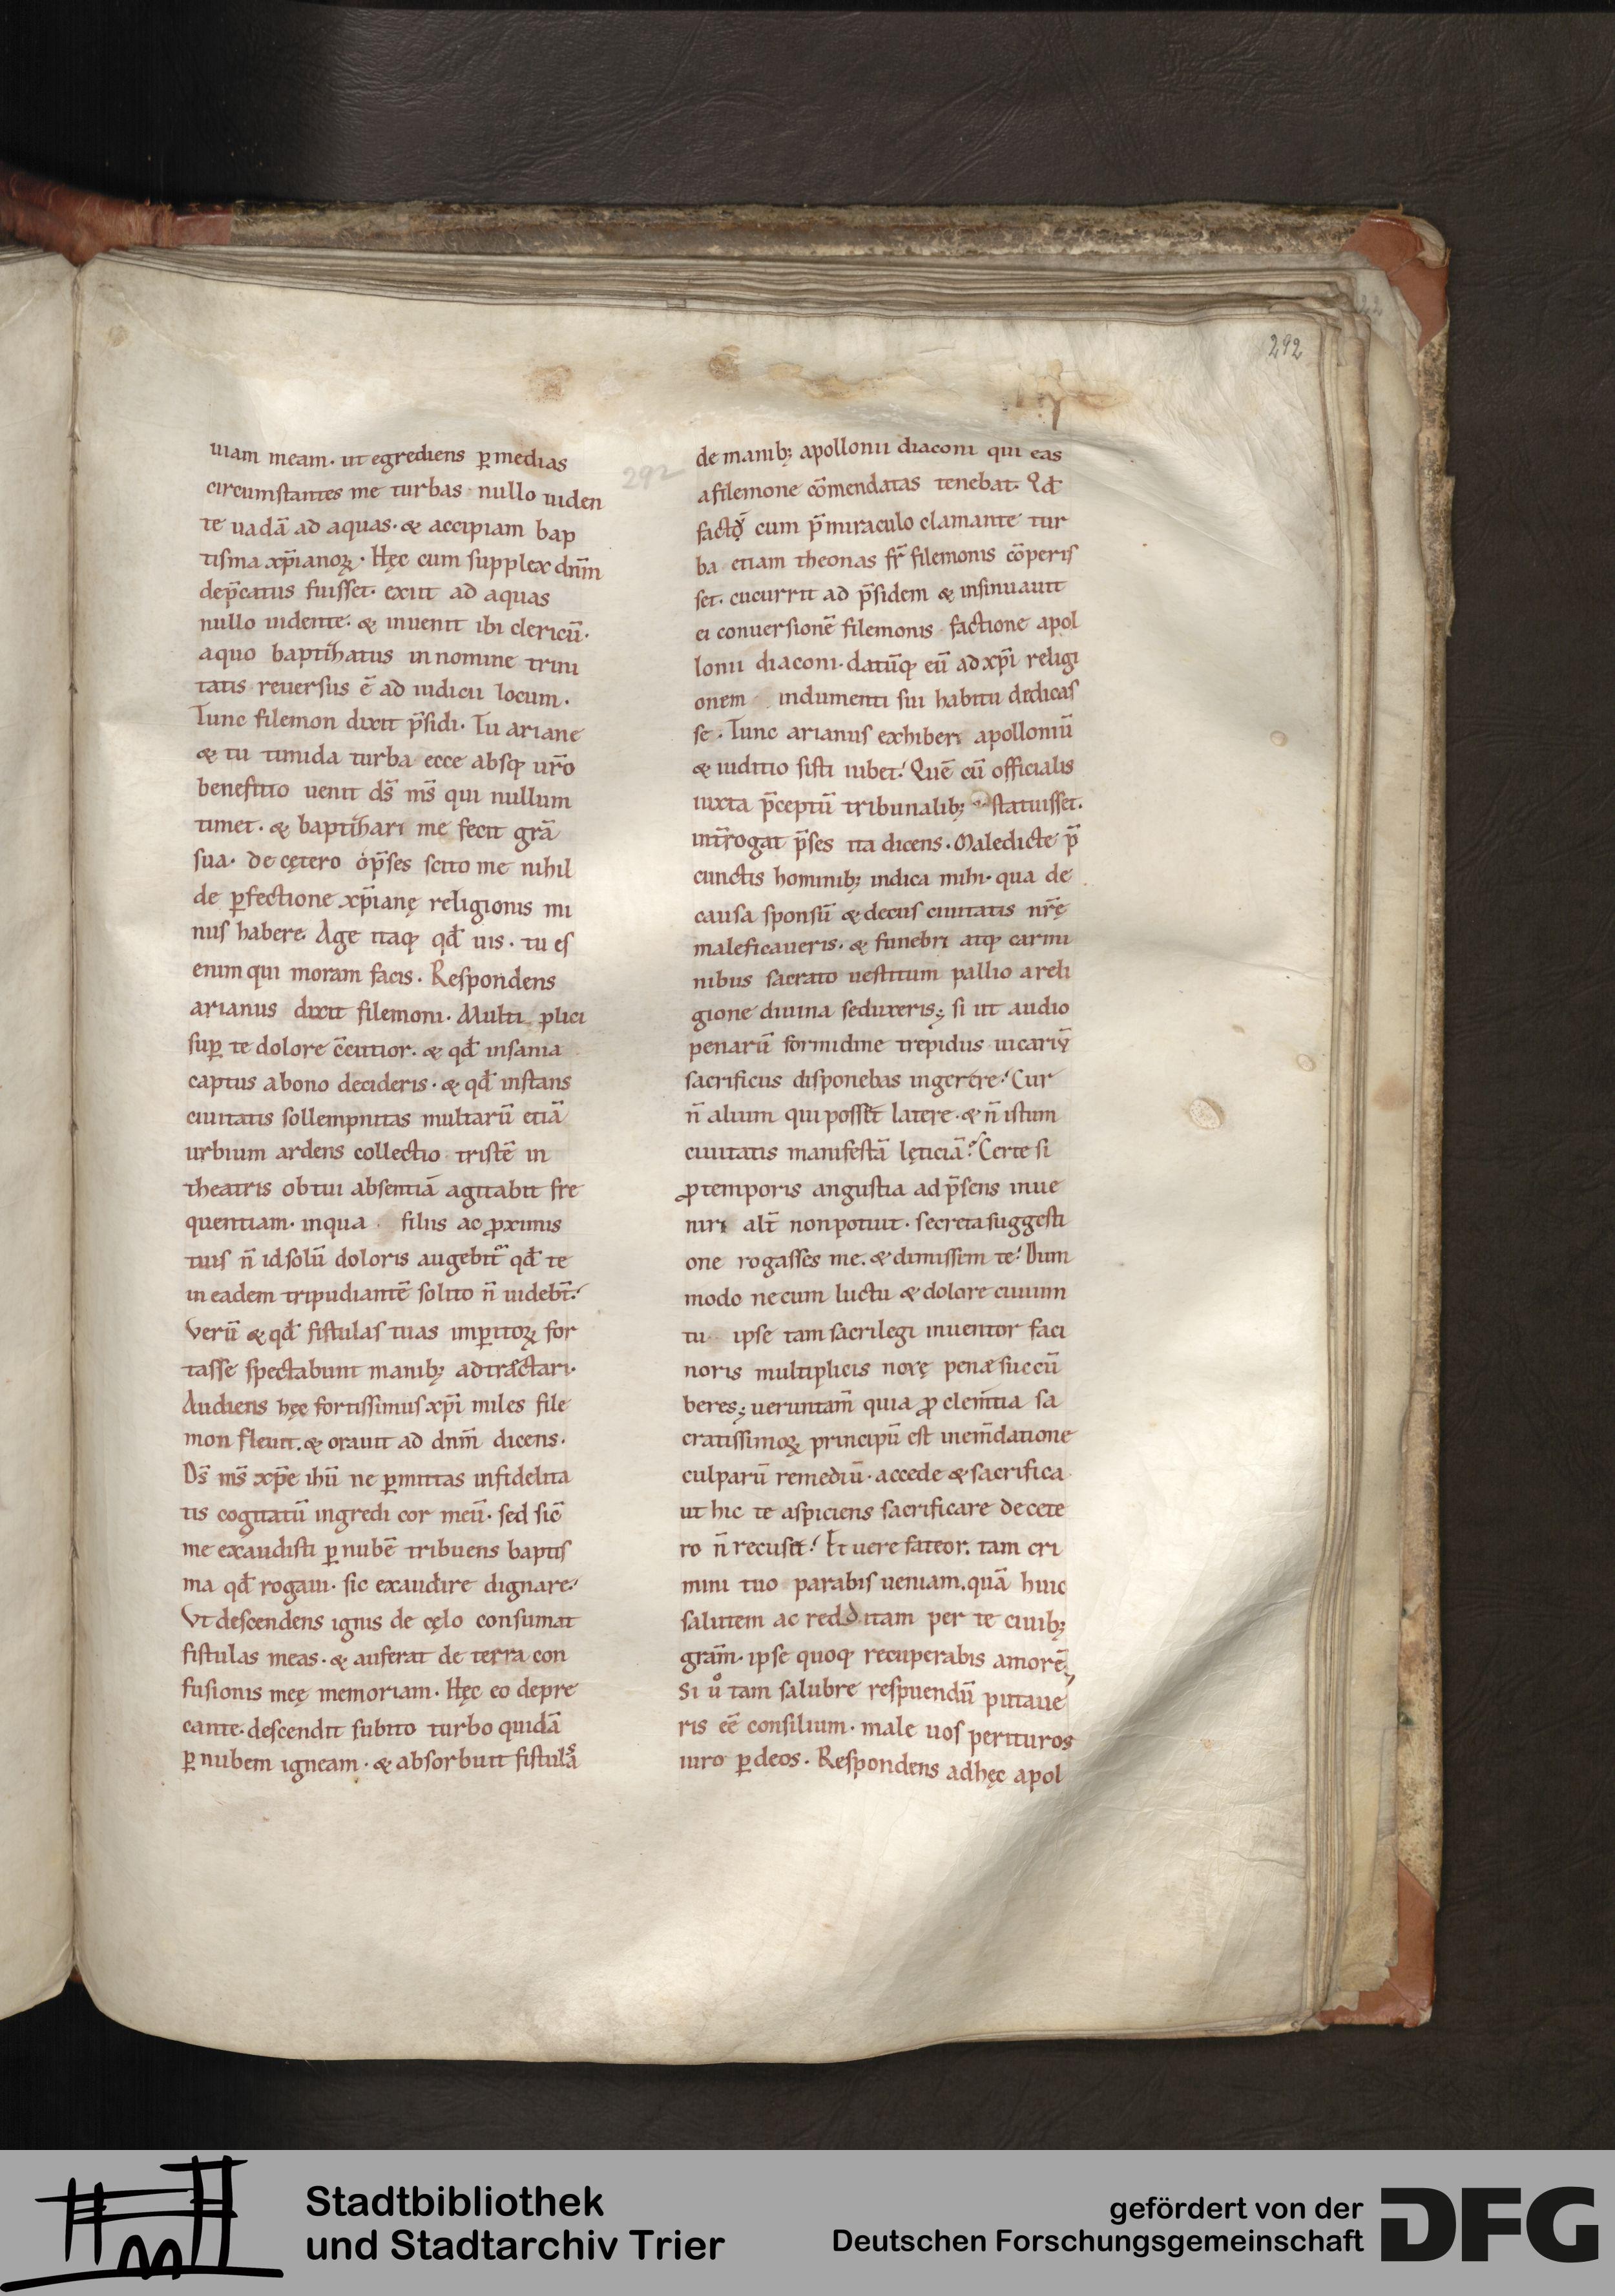 292
292
uiam meam. ut egrediens ꝑ medias
circumstantes me turbas nullo uiden
te uadā ad aquas. & accipiam bap
tisma xp̄ianoꝝ. Hęc cum supplex dnm̄
dep̄catus fuisset. exiit ad aquas
nullo uidente. & inuenit ibi clericū.
a quo baptizatus in nomine trini
tatis reuersus ē ad iudicii locum.
Tunc filemon dixit p̄sidi. Tu ariane
& tu timida turba ecce absq; ur̄o
benefitio uenit ds̄ ms̄ qui nullum
timet. & baptizari me fecit grā
sua. de cętero o p̄ses scito me nihil
de ꝑfectione xp̄ianę religionis mi
nus habere. Age itaq; qd̄ uis. tu es
enim qui moram facis. Respondens
arianus dixit filemoni. Multi plici
suꝑ te dolore c̄cutior. & qd̄ insania
captus a bono decideris. & qd̄ instans
ciuitatis sollempnitas multarū etiā
urbium ardens collectio tristē in
theatris ob tui absentiā agitabit fre
quentiam. in qua filiis ac ꝓximis
tuis n̄ id solū doloris augebit̄ qd̄ te
in eadem tripudiantē solito n̄ uidebt̄.
Verū & qd̄ fistulas tuas imꝑitoꝝ for
tasse spectabunt manib; adtrectari.
Audiens hęc fortissimus xp̄i miles file
mon fleuit. & orauit ad dnm̄ dicens.
Ds̄ ms̄ xp̄e ihū ne ꝑmittas infidelita
tis cogitatū ingredi cor meū. sed sic̄
me exaudisti ꝑ nubē tribuens baptis
ma qd̄ rogaui. sic exaudire dignare.
Vt descendens ignis de cęlo consumat
fistulas meas. & auferat de terra con
fusionis meę memoriam. Hęc eo depre
cante. descendit subito turbo quidā
ꝑ nubem igneam. & absorbuit fistulas
de manib; apollonii diaconi qui eas
a filemone cōmendatas tenebat. Qd̄
factū cum p̄ miraculo clamante tur
ba etiam theonas fr̄ filemonis cōperis
set. cucurrit ad p̄sidem & insinuauit
ei conuersionē filemonis factione apol
lonii diaconi. datūq; eū ad xp̄i religi
onem indumenti sui habitu dedicas
se. Tunc arianus exhiberi apolloniū
& iuditio sisti iubet. Quē cū officialis
iuxta p̄ceptū tribunalib; statuisset.
int̄rogat p̄ses ita dicens. Maledicte p̄
cunctis hominib; indica mihi. qua de
causa sponsū & decus ciuitatis nr̄ę
maleficaueris. & funebri atq; carmi
nibus sacrato uestitum pallio a reli
gione diuina seduxeris; si ut audio
penarū formidine trepidus uicariū
sacrificiis disponebas ingerere. Cur
n̄ alium qui posset latere. & n̄ istum
ciuitatis manifestā lęticiā? Certe si
ꝓ temporis angustia ad p̄sens inue
niri alt̄ non potuit. secreta suggesti
one rogasses me. & dimissem te. Dum
modo ne cum luctu & dolore ciuium
tu ipse tam sacrilegi inuentor faci
noris multiplicis noxę penæ succū
beres; ueruntam̄ quia ꝓ clem̄tia sa
cratissimoꝝ principū est in em̄datione
culparū remediū. accede & sacrifica
ut hic te aspiciens sacrificare de cete
ro n̄ recuset. Et uere fateor. tam cri
mini tuo parabis ueniam. quā huic
salutem ac redditam per te ciuib;
gram̄. ipse quoq; recuperabis amorē;
Si ů tam salubre respuendū putaue
ris eē consilium. male uos perituros
iuro ꝑ deos. Respondens ad hęc apol
Stadtbibliothek
und Stadtarchiv Trier
gefördert von der
Deutschen Forschungsgemeinschaft
DFG